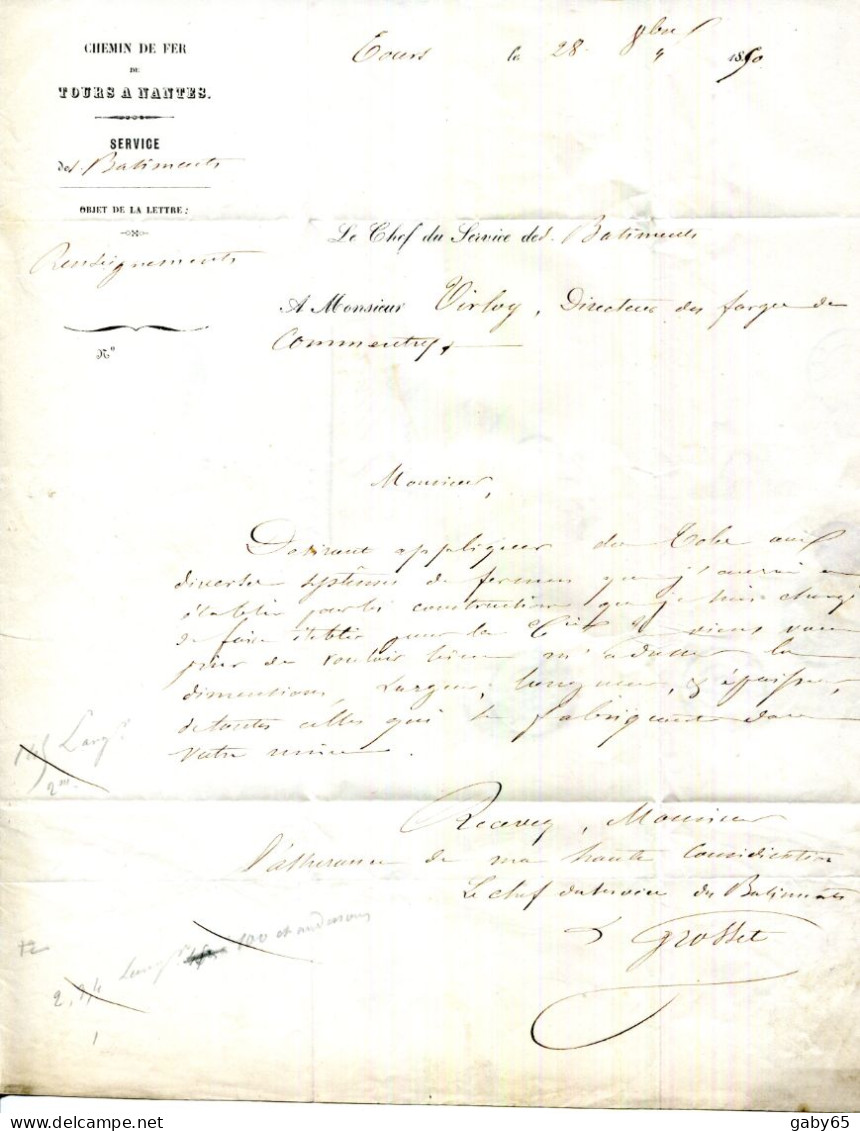 CHEMIN DE FER
DE
TOURS A NANTES.
SERVICE
des Batiments
OBJET DE LA LETTRE :
Renseignements
N°
Tours le 28 8bre 1850
Le Chef du Service des Batiments
A Monsieur Virloy, Directeur des forges de
Commentry,
Monsieur,
Desirant appliquer du Tole aux
diverses systêmes de fermes que j'aurai a
établir pour les constructions que je suis chargé
de faire établir pour la Cie je viens vous
prier de vouloir bien m'adresser les
dimentions, Largeur, longueur, & épaisseur,
de toutes celles qui se fabriquent dans
votre usine.
Recevez, Monsieur
l'assurance de ma haute Considération
Le chef du service des Batiments
Grosset
Largr
2m
500 et au dessous
2, 3/4
1
gaby65